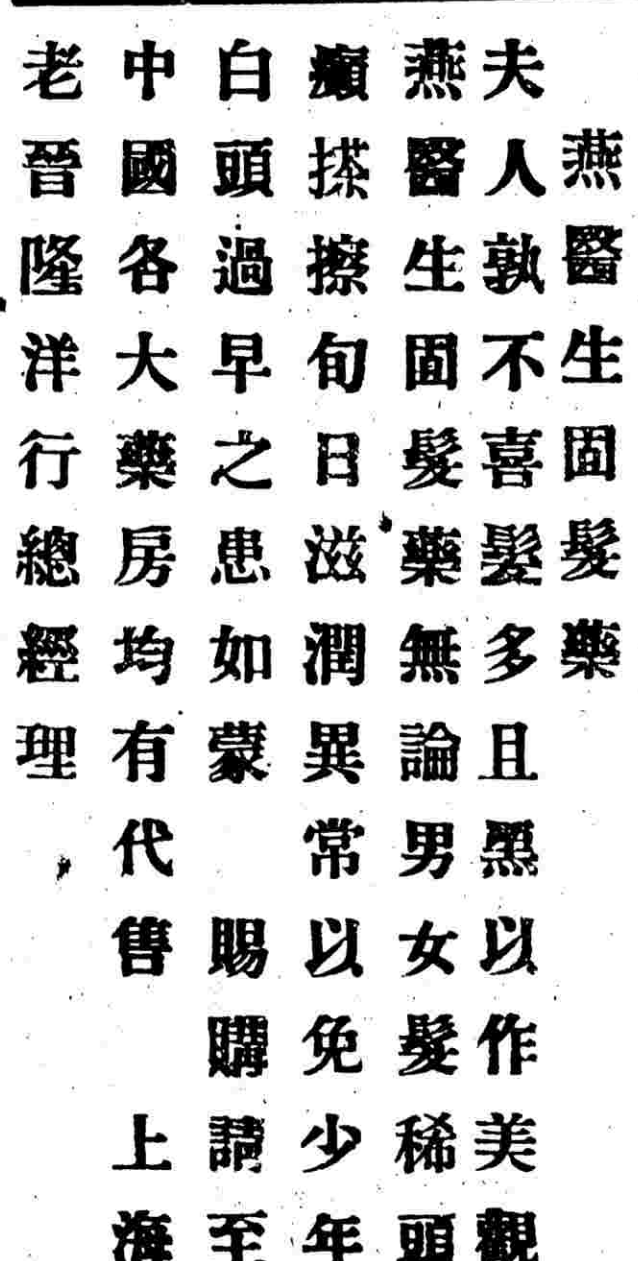 燕醫生固髮藥
夫人孰不喜髮多且黑以作美觀
燕醫生固髮藥無論男女髮稀頭
癩搽擦旬日滋潤異常以免少年
白頭過早之患如蒙 賜購請至
中國各大藥房均有代售 上海
老晉隆洋行總經理